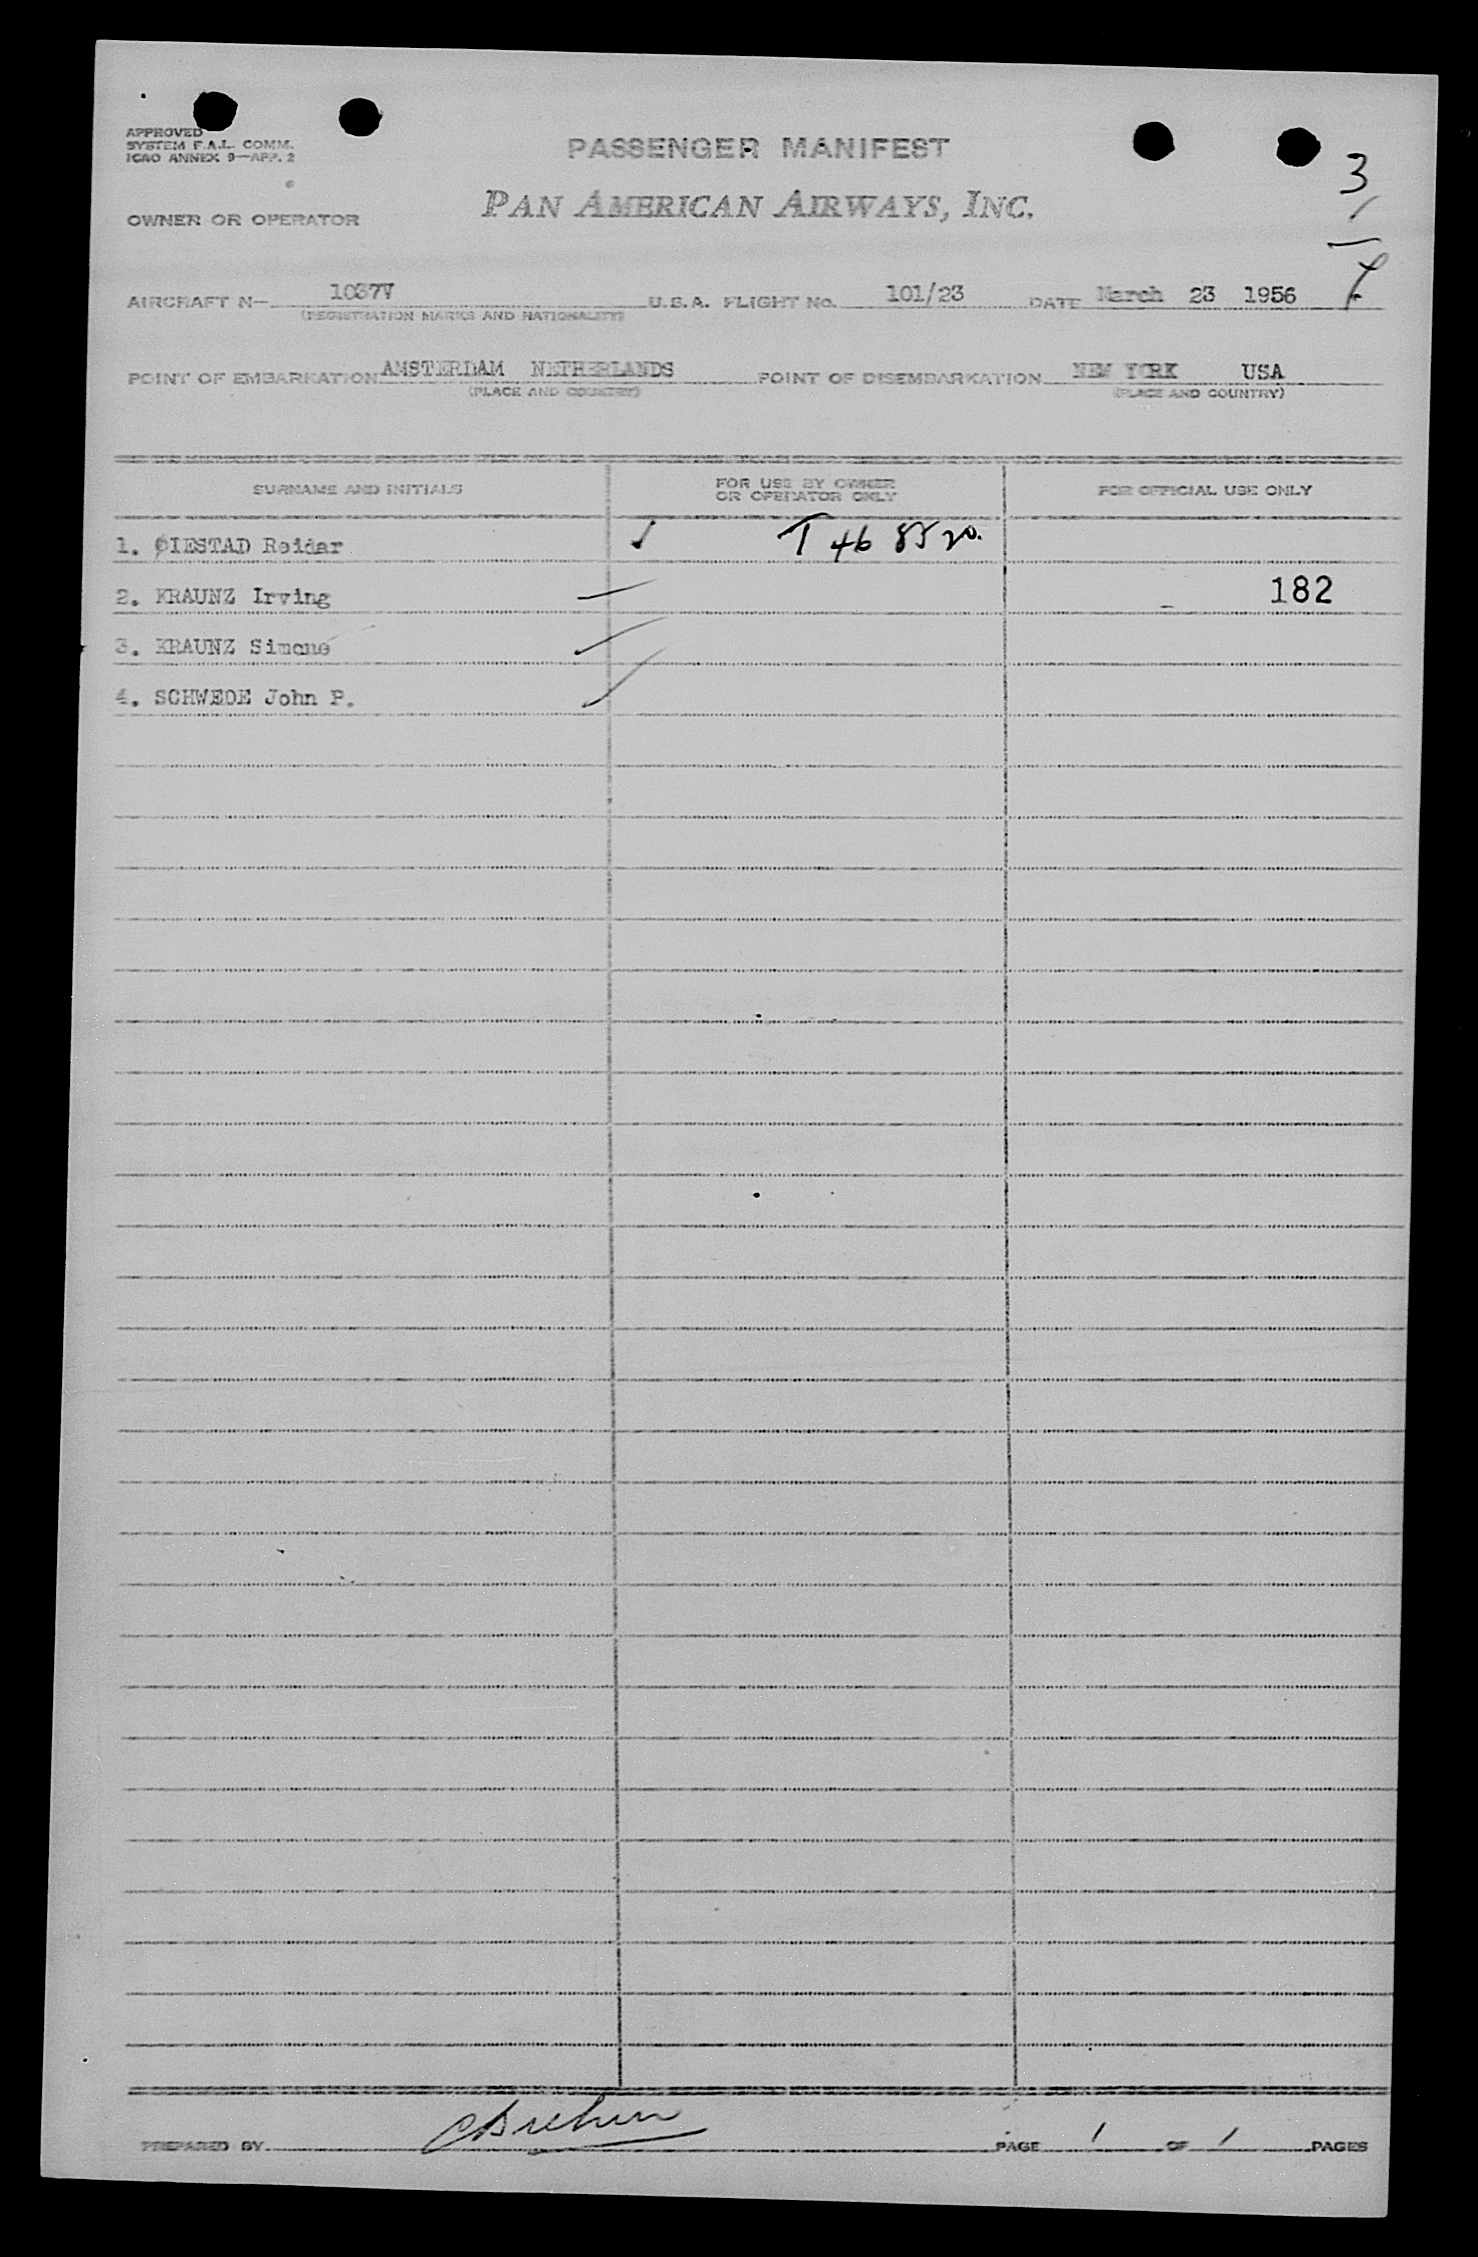 APPROVED
SYSTEM F.A.L. COMM.
ICAO ANNEX 9—APP. 2
PASSENGER MANIFEST
3
1
OWNER OR OPERATOR PAN AMERICAN AIRWAYS, INC.
AIRCRAFT N— 1037V U.S.A. FLIGHT No. 101/23 DATE March 23 1956
(REGISTRATION MARKS AND NATIONALITY)
POINT OF EMBARKATION AMSTERDAM NETHERLANDS POINT OF DISEMBARKATION NEW YORK USA
(PLACE AND COUNTRY) (PLACE AND COUNTRY)
SURNAME AND INITIALS FOR USE BY OWNER OR OPERATOR ONLY FOR OFFICIAL USE ONLY
1. ØIESTAD Reidar ✓ T 46 85 20.
2. KRAUNZ Irving 182
3. KRAUNZ Simone
4. SCHWEDE John P.
PREPARED BY PAGE 1 OF 1 PAGES